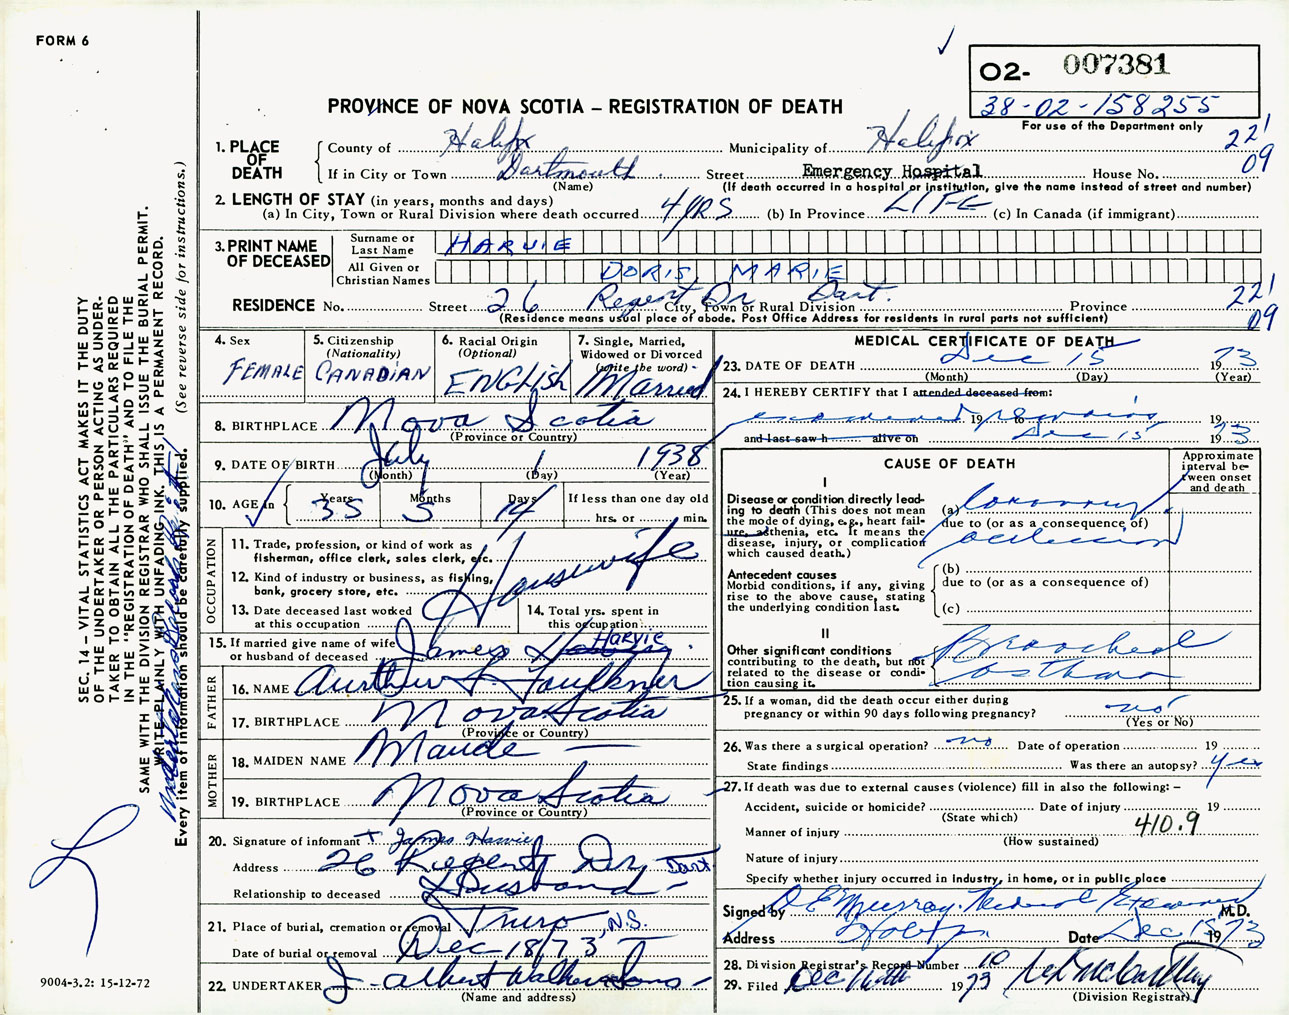 FORM 6
02- 007381
38-02-158255
For use of the Department only
PROVINCE OF NOVA SCOTIA – REGISTRATION OF DEATH
22'
09
1. PLACE OF DEATH
County of Halifax Municipality of Halifax
If in City or Town Dartmouth Street Emergency Hospital House No.
(Name) (If death occurred in a hospital or institution, give the name instead of street and number)
2. LENGTH OF STAY (in years, months and days)
(a) In City, Town or Rural Division where death occurred 4 YRS (b) In Province LIFE (c) In Canada (if immigrant)
3. PRINT NAME OF DECEASED
Surname or Last Name HARVIE
All Given or Christian Names DORIS MARIE
RESIDENCE No. Street 26 Regent Dr City, Town or Rural Division Dart. Province
22'
09
(Residence means usual place of abode. Post Office Address for residents in rural parts not sufficient)
4. Sex FEMALE
5. Citizenship (Nationality) CANADIAN
6. Racial Origin (Optional) ENGLISH
7. Single, Married, Widowed or Divorced (write the word) - Married
8. BIRTHPLACE Nova Scotia
(Province or Country)
9. DATE OF BIRTH July 1 1938
(Month) (Day) (Year)
10. AGE in Years 35 Months 5 Days 14 If less than one day old hrs. or min.
OCCUPATION
11. Trade, profession, or kind of work as fisherman, office clerk, sales clerk, etc.
Housewife
12. Kind of industry or business, as fishing, bank, grocery store, etc.
13. Date deceased last worked at this occupation
14. Total yrs. spent in this occupation
15. If married give name of wife or husband of deceased James Harvie
FATHER
16. NAME Faulkner
17. BIRTHPLACE Nova Scotia
(Province or Country)
MOTHER
18. MAIDEN NAME Maude
19. BIRTHPLACE Nova Scotia
(Province or Country)
20. Signature of informant + James Harvie
Address 26 Regent Dr Dart
Relationship to deceased Husband
21. Place of burial, cremation or removal Truro, N.S.
Date of burial or removal Dec 18/73
22. UNDERTAKER J. Albert Walker & Sons
(Name and address)
MEDICAL CERTIFICATE OF DEATH
23. DATE OF DEATH Dec 15 1973
(Month) (Day) (Year)
24. I HEREBY CERTIFY that I attended deceased from:
examined 19 remains 19
and last saw h alive on Dec 15 1973
CAUSE OF DEATH
Approximate interval between onset and death
I
Disease or condition directly leading to death (This does not mean the mode of dying, e.g., heart failure, asthenia, etc. It means the disease, injury, or complication which caused death.)
(a) Coronary
due to (or as a consequence of)
occlusion
Antecedent causes
Morbid conditions, if any, giving rise to the above cause, stating the underlying condition last.
(b)
due to (or as a consequence of)
(c)
II
Other significant conditions contributing to the death, but not related to the disease or condition causing it.
Bronchial
asthma
25. If a woman, did the death occur either during pregnancy or within 90 days following pregnancy? no
(Yes or No)
26. Was there a surgical operation? no Date of operation 19
State findings Was there an autopsy? yes
27. If death was due to external causes (violence) fill in also the following: –
Accident, suicide or homicide? Date of injury 19
(State which)
410.9
Manner of injury
(How sustained)
Nature of injury
Specify whether injury occurred in industry, in home, or in public place
Signed by D E Murray. Medical Examiner M.D.
Address Halifax Date Dec 1973
28. Division Registrar's Record Number 10
29. Filed Dec 1973
(Division Registrar)
SEC. 14 – VITAL STATISTICS ACT MAKES IT THE DUTY
OF THE UNDERTAKER OR PERSON ACTING AS UNDER-
TAKER TO OBTAIN ALL THE PARTICULARS REQUIRED
IN THE "REGISTRATION OF DEATH" AND TO FILE THE
SAME WITH THE DIVISION REGISTRAR WHO SHALL ISSUE THE BURIAL PERMIT.
WRITE PLAINLY WITH UNFADING INK. THIS IS A PERMANENT RECORD.
Every item of information should be carefully supplied. (See reverse side for instructions.)
9004-3.2: 15-12-72